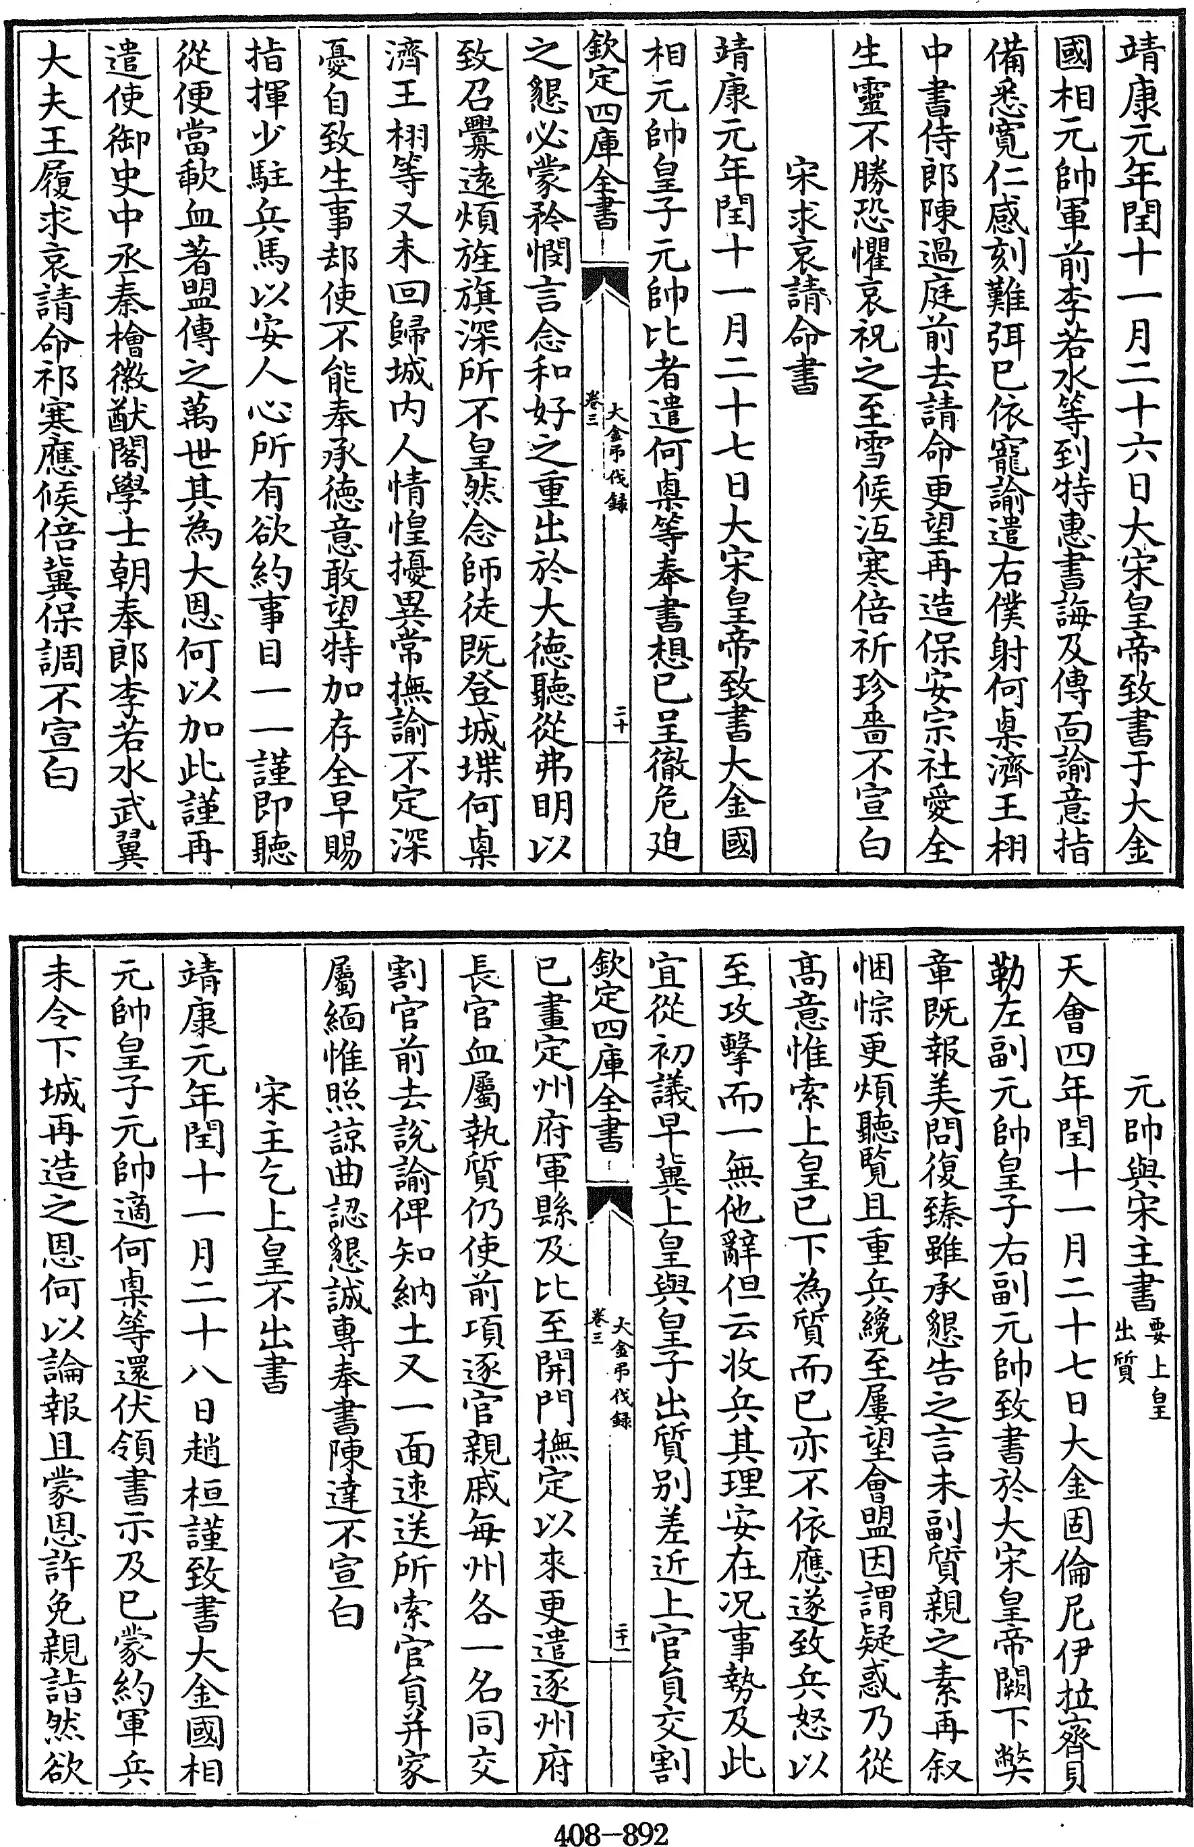 靖康元年閏十一月二十六日大宋皇帝致書于大金
國相元帥軍前李若水等到特惠書誨及傳面諭意指
備悉寛仁感刻難弭已依寵諭遣右僕射何㮚濟王栩
中書侍郎陳過庭前去請命更望再造保安宗社愛全
生靈不勝恐懼哀祝之至雪候沍寒倍祈珍嗇不宣白
宋求哀請命書
靖康元年閏十一月二十七日大宋皇帝致書大金國
相元帥皇子元帥比者遣何㮚等奉書想已呈徹危廹
欽定四庫全書
大金弔伐録
卷三
二十
之懇必蒙矜憫言念和好之重出於大徳聽從弗明以
致召釁遠煩旌旗深所不皇然念師徒既登城堞何㮚
濟王栩等又未回歸城内人情惶擾異常撫諭不定深
憂自致生事却使不能奉承徳意敢望特加存全早賜
指揮少駐兵馬以安人心所有欲約事目一一謹即聽
從便當歃血著盟傳之萬世其為大恩何以加此謹再
遣使御史中丞秦檜徽猷閣學士朝奉郎李若水武翼
大夫王履求哀請命祁寒應候倍冀保調不宣白
元帥與宋主書要上皇出質
天會四年閏十一月二十七日大金固倫尼伊拉齊貝
勒左副元帥皇子右副元帥致書於大宋皇帝闕下弊
章既報美問復臻雖承懇告之言未副質親之素再叙
悃悰更煩聽覽且重兵纔至屢望會盟因謂疑惑乃從
髙意惟索上皇已下為質而已亦不依應遂致兵怒以
至攻擊而一無他辭但云收兵其理安在況事勢及此
宜從初議早冀上皇與皇子出質别差近上官員交割
欽定四庫全書
大金弔伐録
卷三
二十一
已畫定州府軍縣及比至開門撫定以來更遣逐州府
長官血屬執質仍使前項逐官親戚每州各一名同交
割官前去說諭俾知納土又一面速送所索官員并家
屬緬惟照諒曲認懇誠專奉書陳達不宣白
宋主乞上皇不出書
靖康元年閏十一月二十八日趙桓謹致書大金國相
元帥皇子元帥適何㮚等還伏領書示及已蒙約軍兵
未令下城再造之恩何以論報且蒙恩許免親詣然欲
408-892